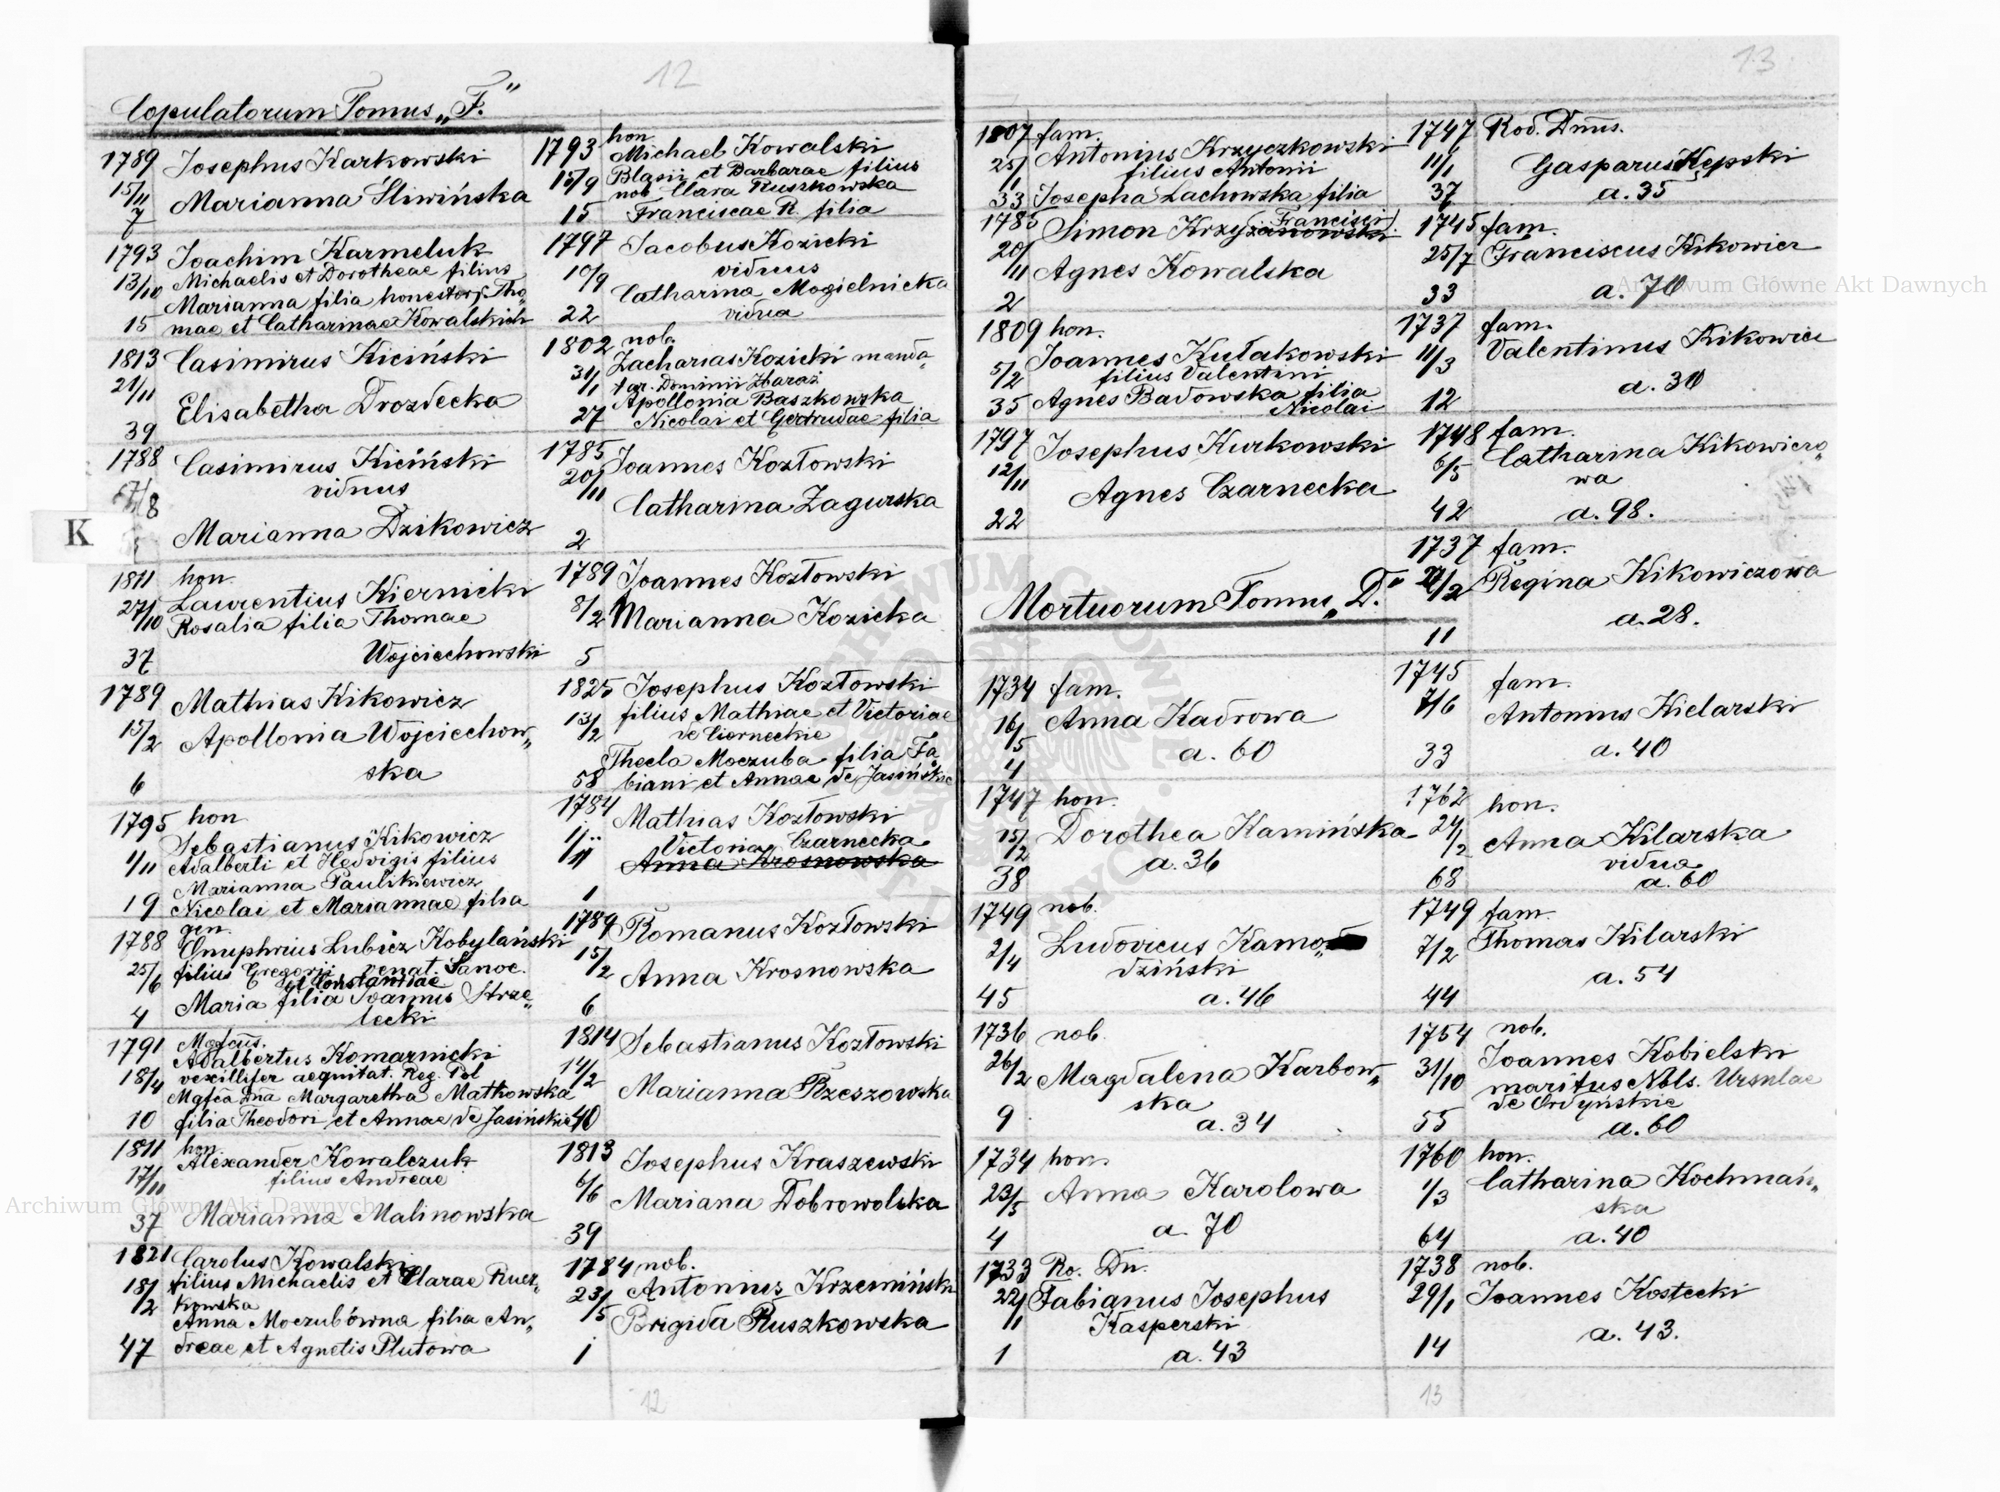 12
Copulatorum Tomus „F."
1789 Josephus Karkowski
15/11
7 Marianna Śliwińska
1793 Joachim Karmeluk
13/10 Michaelis et Dorotheae filius
Marianna filia honestor. Tho„
15 mae et Catharinae Kowalskich
1813 Casimirus Kiciński
21/11
39 Elisabetha Drozdecka
1788 Casimirus Kiciński
viduus
7/8
Marianna Dzikowicz
K
1811 hon.
27/10 Laurentius Kiernicki
Rosalia filia Thomae
37 Wojciechowski
1789 Mathias Kikowicz
15/2 Apollonia Wojciechow„
6 ska
1795 hon
Sebastianus Kikowicz
1/11 Adalberti et Hedvigis filius
Marianna Paulikiewicz
19 Nicolai et Mariannae filia
gen.
1788 Onuphrius Lubicz Kobylański
25/6 filius Gregorii venat. Sanoc.
et Constantiae
Maria filia Joannis Strze„
4 lecki
1791 Mgfcus.
Adalbertus Komarnicki
18/4 vexillifer aequitat. Reg. Pol
Mgfca Dna Margaretha Mathowska
10 filia Theodori et Annae de Jasińskie
1811 hon.
Alexander Kowalczuk
17/11 filius Andreae
37 Marianna Malinowska
1821 Carolus Kowalski
18/2 filius Michaelis et Clarae Rusz„
kowska
Anna Moczubówna filia An„
47 dreae et Agnetis Plutowa
1793 hon
Michael Kowalski
15/9 Blasii et Barbarae filius
nob Clara Ruszkowska
15 Franciscae R. filia
1797 Jacobus Kozicki
10/9 viduus
Catharina Mogielnicka
22 vidua
1802 nob.
Zacharias Kozicki manda„
31/1 tar. Dominii Zbaraż
Apollonia Baszkowska
27 Nicolai et Gertrudae filia
1785 Joannes Kozłowski
20/11
2 Catharina Zagurska
1789 Joannes Kozłowski
8/2 Marianna Kozicka
5
1825 Josephus Kozłowski
13/2 filius Mathiae et Victoriae
de Ciorneckie
Thecla Moczuba filia Fa„
58 biani et Annae de Jasińskie
1784 Mathias Kozłowski
1/11 Victoria Czarnecka
Anna Krosnowska
1
1789 Romanus Kozłowski
15/2 Anna Krosnowska
6
1814 Sebastianus Kozłowski
14/2 Marianna Rzeszowska
40
1813 Josephus Kraszewski
6/6 Mariana Dobrowolska
39
1784 nob.
Antonius Krzemiński
23/5 Brigida Ruszkowska
1
12
13
1807 fam.
25/1 Antonius Krzyczkowski
filius Antonii
33 Josepha Lachowska filia
Francisci
1785 Simon Krzyżanowski
20/11 Agnes Kowalska
2
1809 hon.
5/2 Joannes Kułakowski
filius Valentini
35 Agnes Badowska filia
Nicolai
1797 Josephus Kurkowski
12/11 Agnes Czarnecka
22
Mortuorum Tomus „D."
1734 fam.
16/5 Anna Kadrowa
4 a. 60
1747 hon.
15/2 Dorothea Kamińska
38 a. 36
1749 nob.
2/4 Ludovicus Kamo„
dziński
45 a. 46
1736 nob.
26/2 Magdalena Karbow„
ska
9 a. 34
1734 hon.
23/5 Anna Karolowa
4 a. 70
1733 Ro. Dn.
22/1 Fabianus Josephus
Kasperski
1 a. 43
1747 Rod. Dnus.
11/1 Gasparus Kępski
37 a. 35
1745 fam.
25/7 Franciscus Kikowicz
33 a. 70
1737 fam.
11/3 Valentinus Kikowicz
12 a. 30
1748 fam.
6/5 Catharina Kikowiczo„
wa
42 a. 98.
1737 fam.
21/2 Regina Kikowiczowa
11 a. 28.
1745 fam.
7/6 Antonius Kielarski
33 a. 40
1762 hon.
24/2 Anna Kilarska
vidua
68 a. 60
1749 fam.
7/2 Thomas Kilarski
44 a. 54
1754 nob.
31/10 Joannes Kobielski
maritus Nbls. Ursulae
de Ordyńskie
55 a. 60
1760 hon.
1/3 Catharina Kochmań„
ska
64 a. 40
1738 nob.
29/1 Joannes Kostecki
14 a. 43.
13
Archiwum Główne Akt Dawnych
Archiwum Główne Akt Dawnych
ARCHIWUM GŁÓWNE AKT DAWNYCH